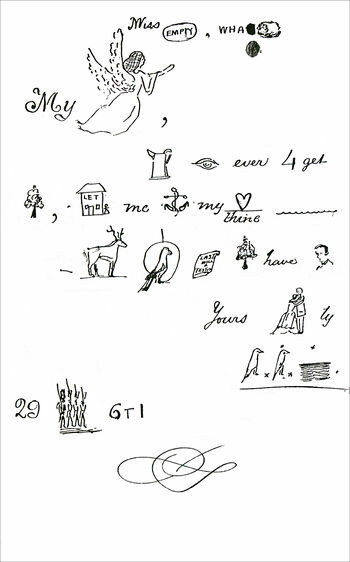 Miss EMPTY, WHA
My ,
ever 4 get
, LET me my thine
LAST WILL have
Yours ly
29 6T1